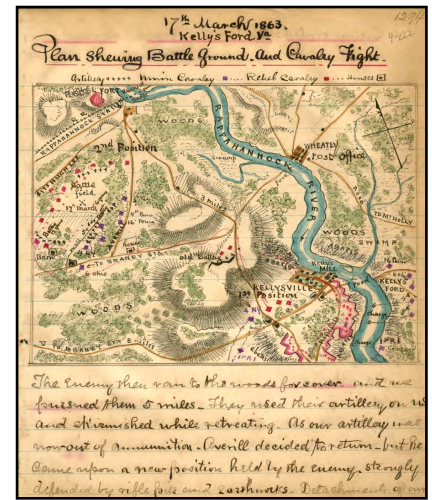 1294
17th March 1863.
Kelly's Ford Va
Plan Shewing Battle Ground. And Cavalry Fight.
Artillery Union Cavalry Rebel Cavalry Houses
REBEL FORT
RAPPAHANNOCK STATION
WOODS
2nd Position
RAPPAHANNOCK RIVER
WHEATLY
Post Office
Swamp
Battle
field
17th March
3 Miles
TO Mt HOLLY
WOODS
SWAMP
Barn
TO BRANDY
old
KELLY'S
MILL
Ford
KELLYS
FORD
6 Ohio
KELLYSVILLE
1st Position
WOODS
TO BRANDY
1st R I
The Enemy then ran to the woods for cover and we
pursued them 5 miles_ They used their artillery on us
and skirmished while retreating. As our artillery was
now out of ammunition_ Averill decided to return_ but he
Came upon a new position held by the enemy. strongly
defended by rifle pits and earthworks. Detachments of our